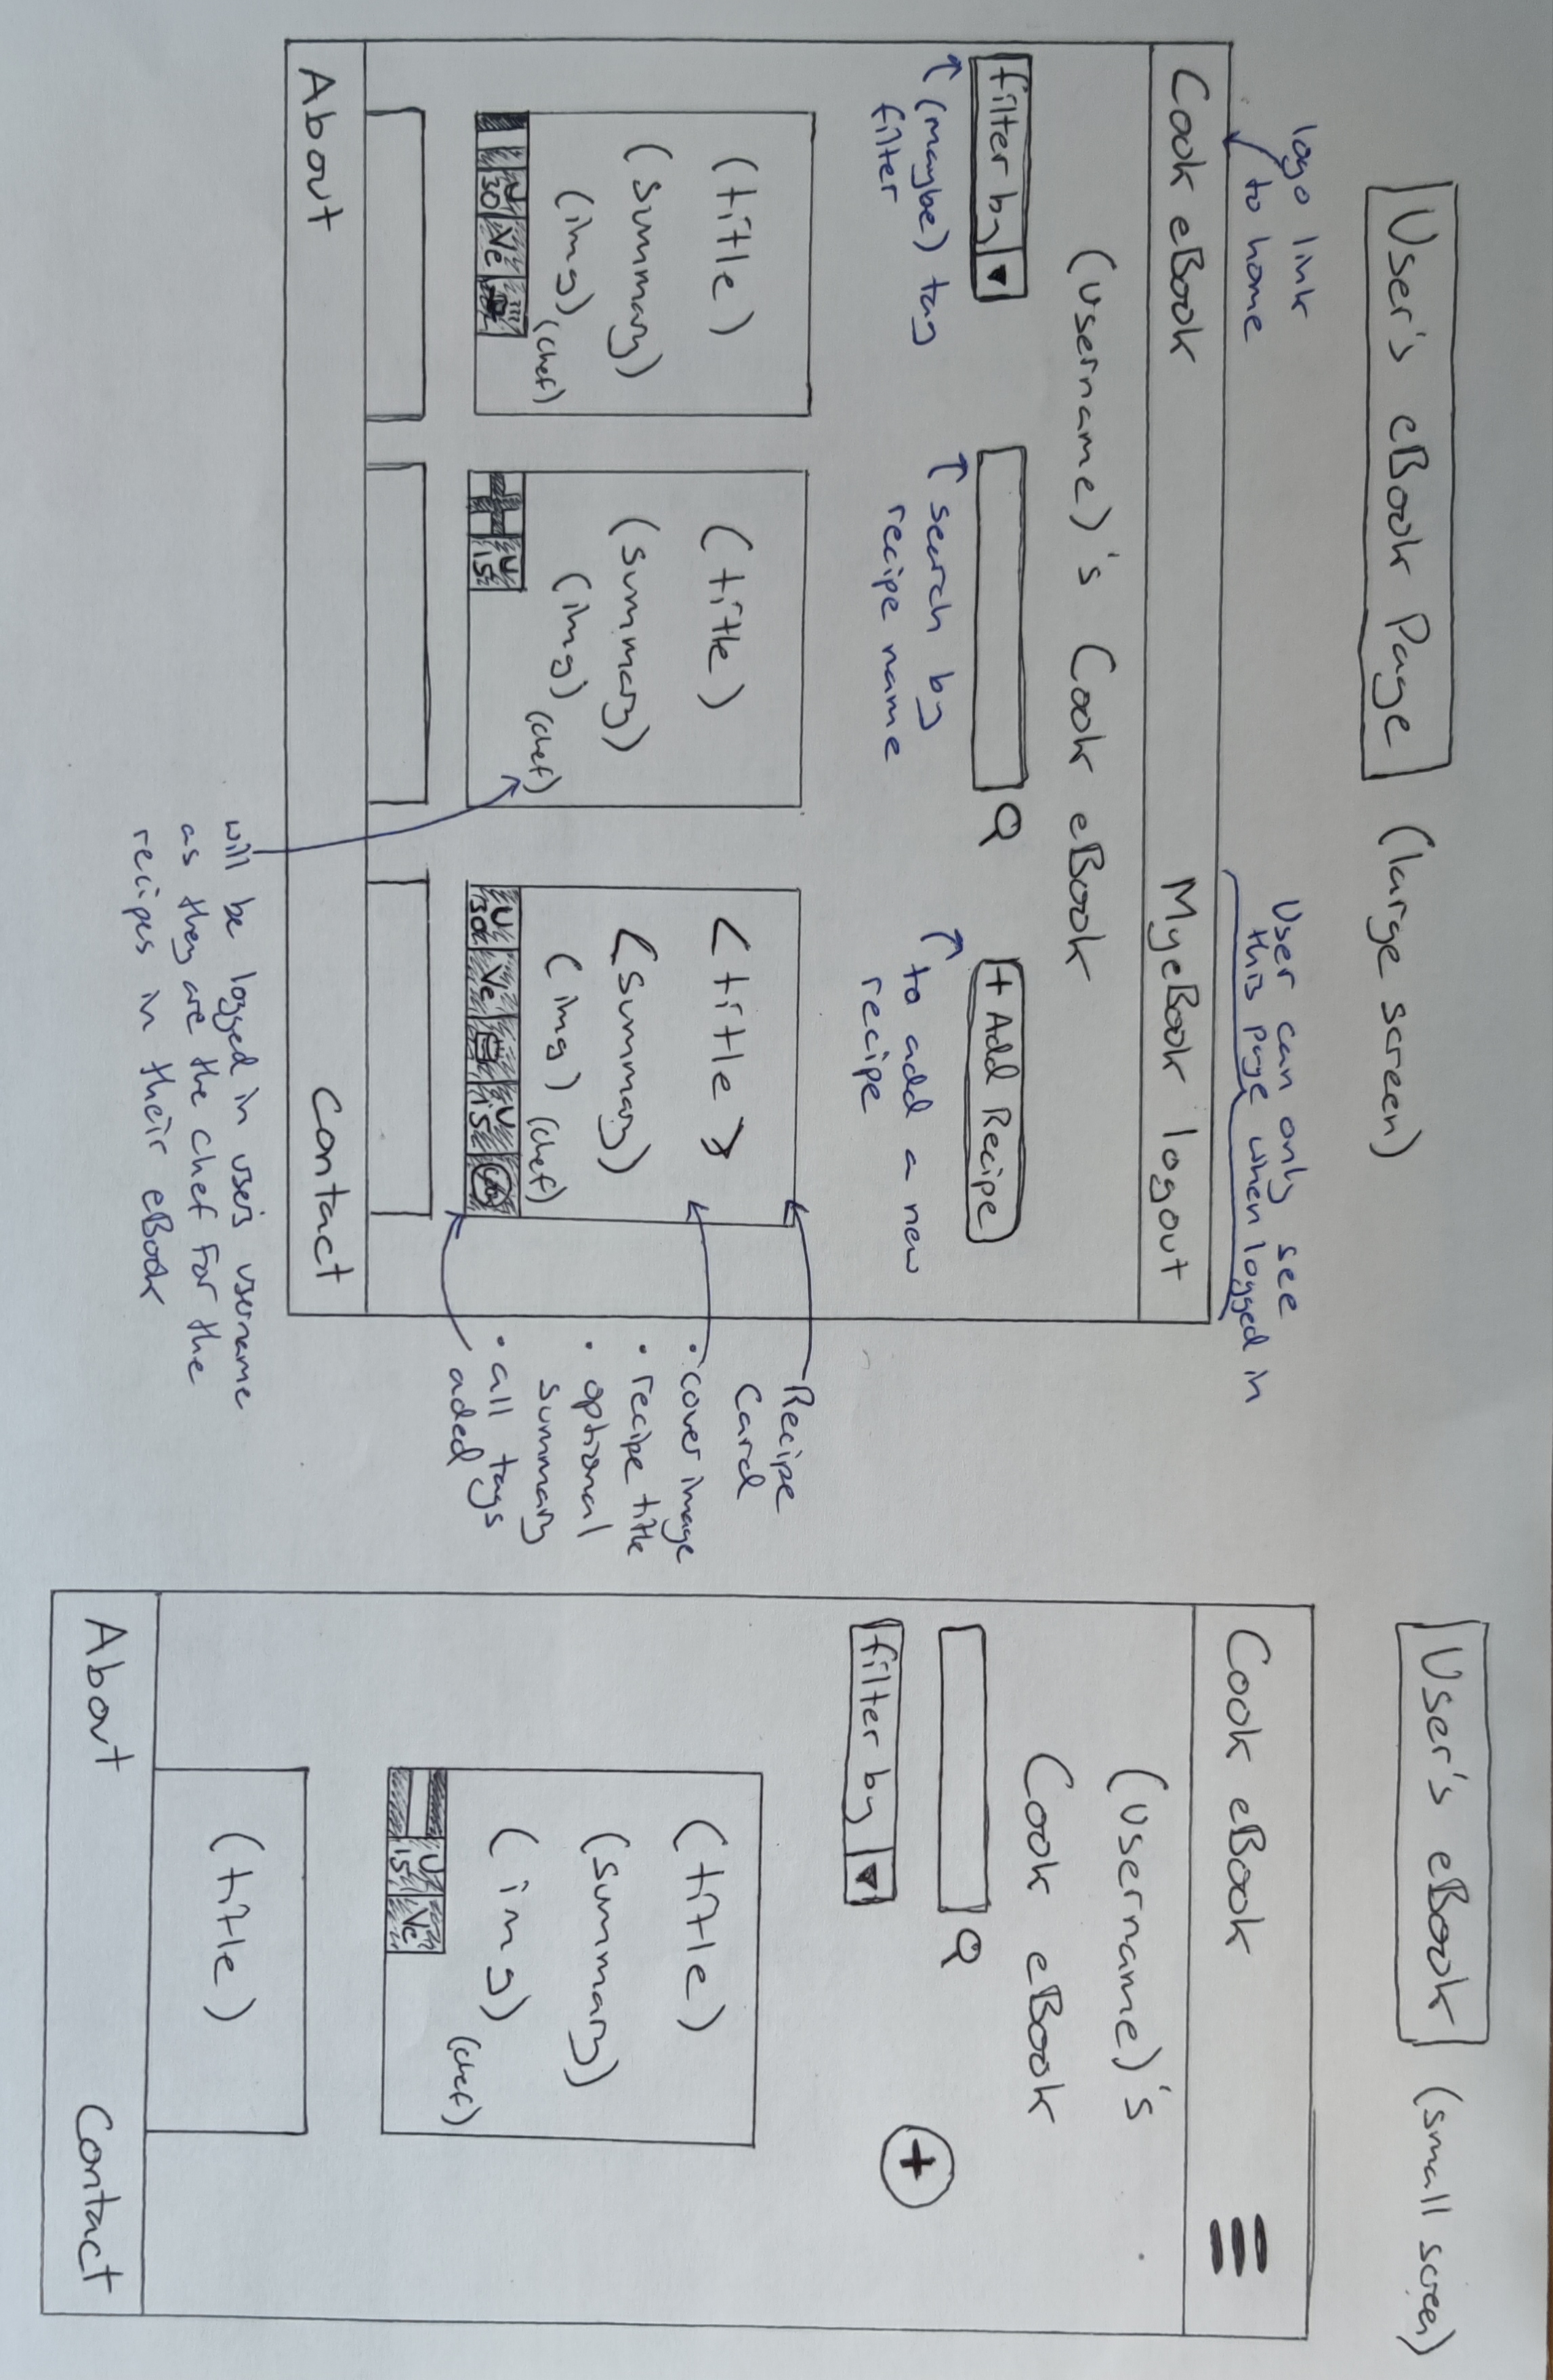 User's eBook Page (large screen)
logo link
to home
User can only see
this page when logged in
Cook eBook MyeBook logout
(username)'s Cook eBook
filter by
+ Add Recipe
(maybe) tag
filter
search by
recipe name
to add a new
recipe
(title)
(summary)
(img)
(chef)
U
30
Ve
(title)
(summary)
(img)
(chef)
U
15
<title>
(summary)
(img)
(chef)
U
30
Ve
U
15
Recipe
Card
• cover image
• recipe title
• optional
summary
• all tags
aded
About Contact
will be logged in user's username
as they are the chef for the
recipes in their eBook
User's eBook (small screen)
Cook eBook
(username)'s
Cook eBook
+
filter by
(title)
(summary)
(img)
(chef)
U
15
Ve
(title)
About Contact